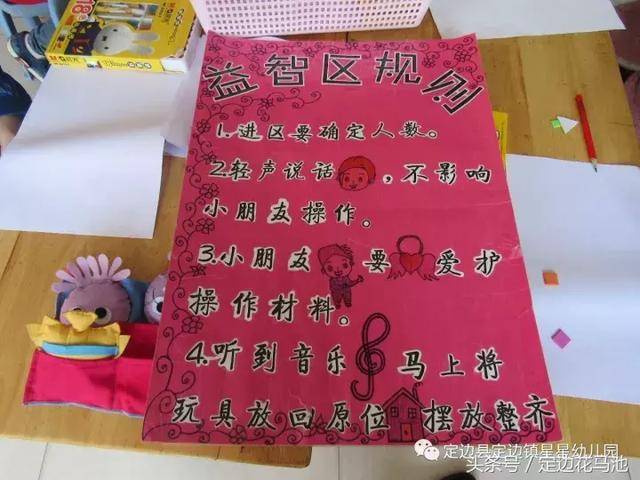 18色
益智区规则
1.进区要确定人数。
2.轻声说话,不影响
小朋友操作。
3.小朋友要爱护
操作材料。
4.听到音乐马上将
玩具放回原位摆放整齐
定边县定边镇星星幼儿园
头条号/定边花马池